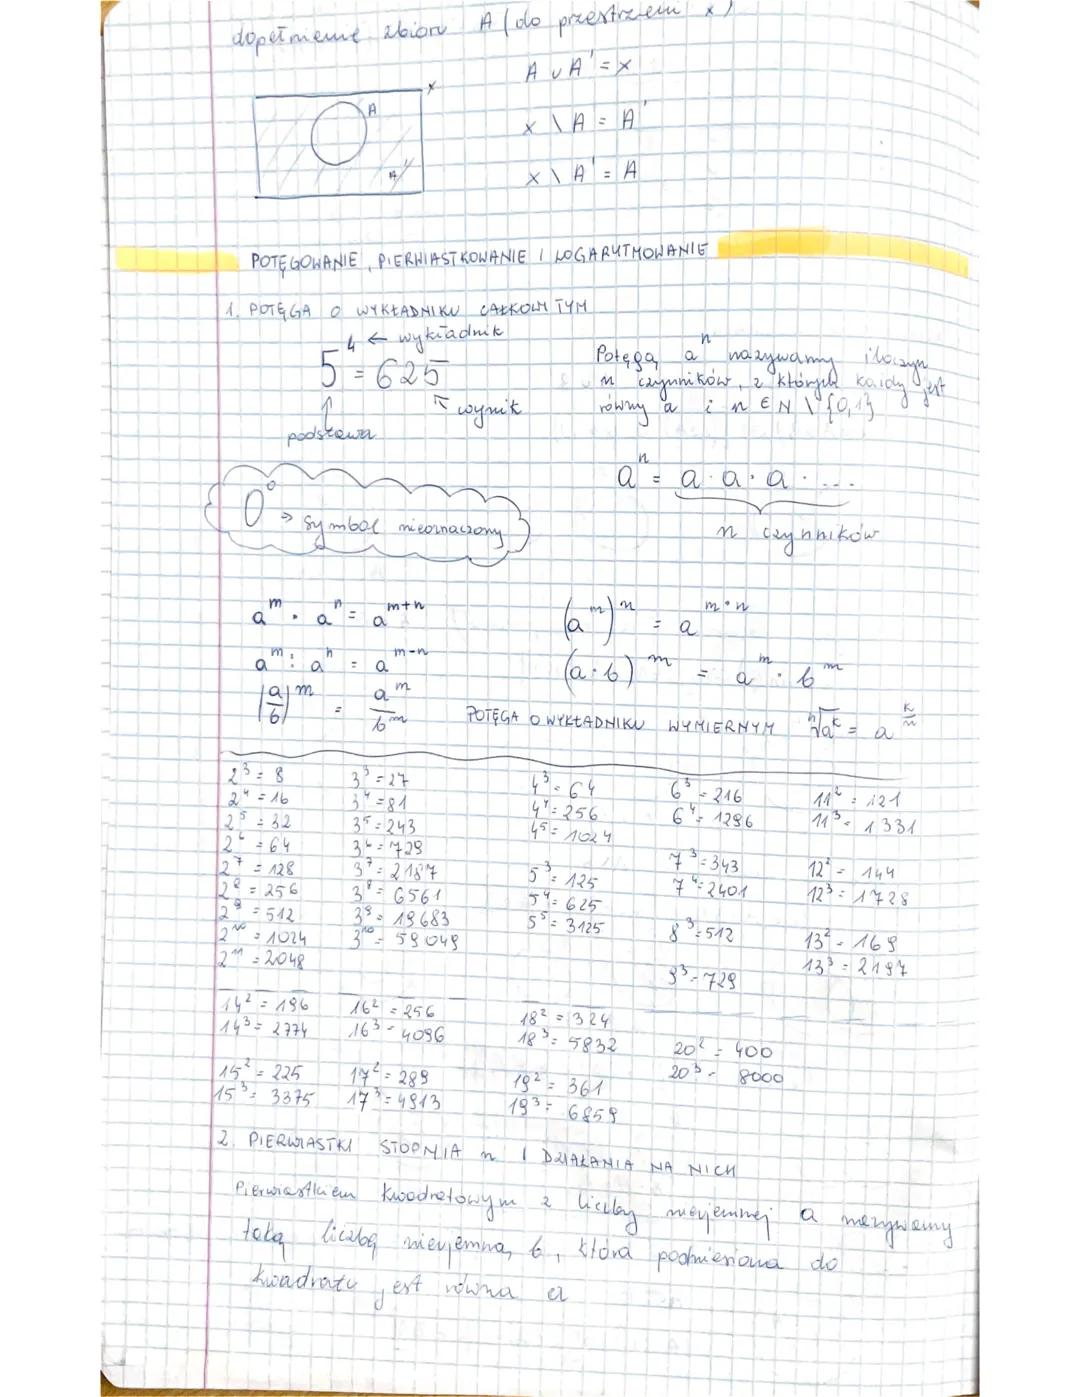 dopełnienie zbioru A (do przestrzeni x)
A ∪ A' = x
x
A
A'
x \ A = A'
x \ A' = A
POTĘGOWANIE, PIERWIASTKOWANIE I LOGARYTMOWANIE
1. POTĘGA O WYKŁADNIKU CAŁKOWITYM
5⁴ = 625
← wykładnik
wynik
podstawa
Potęgą aⁿ nazywamy iloczyn
n czynników, z których każdy jest
równy a i n ∈ N \ {0,1}
aⁿ = a · a · a · ...
n czynników
0⁰ → symbol nieoznaczony
a^m · a^n = a^(m+n)
(a^m)^n = a^(m·n)
a^m : a^n = a^(m-n)
(a·b)^m = a^m · b^m
(a/b)^m = a^m/b^m
POTĘGA O WYKŁADNIKU WYMIERNYM ⁿ√a^k = a^(k/n)
2³ = 8
2⁴ = 16
2⁵ = 32
2⁶ = 64
2⁷ = 128
2⁸ = 256
2⁹ = 512
2¹⁰ = 1024
2¹¹ = 2048
3³ = 27
3⁴ = 81
3⁵ = 243
3⁶ = 729
3⁷ = 2187
3⁸ = 6561
3⁹ = 19683
3¹⁰ = 59049
4³ = 64
4⁴ = 256
4⁵ = 1024
5³ = 125
5⁴ = 625
5⁵ = 3125
6³ = 216
6⁴ = 1296
7³ = 343
7⁴ = 2401
8³ = 512
9³ = 729
11² = 121
11³ = 1331
12² = 144
12³ = 1728
13² = 169
13³ = 2197
14² = 196
14³ = 2774
15² = 225
15³ = 3375
16² = 256
16³ = 4096
17² = 289
17³ = 4913
18² = 324
18³ = 5832
19² = 361
19³ = 6859
20² = 400
20³ = 8000
2. PIERWIASTKI STOPNIA n I DZIAŁANIA NA NICH
Pierwiastkiem kwadratowym z liczby nieujemnej a nazywamy
taką liczbę nieujemną b, która podniesiona do
kwadratu jest równa a